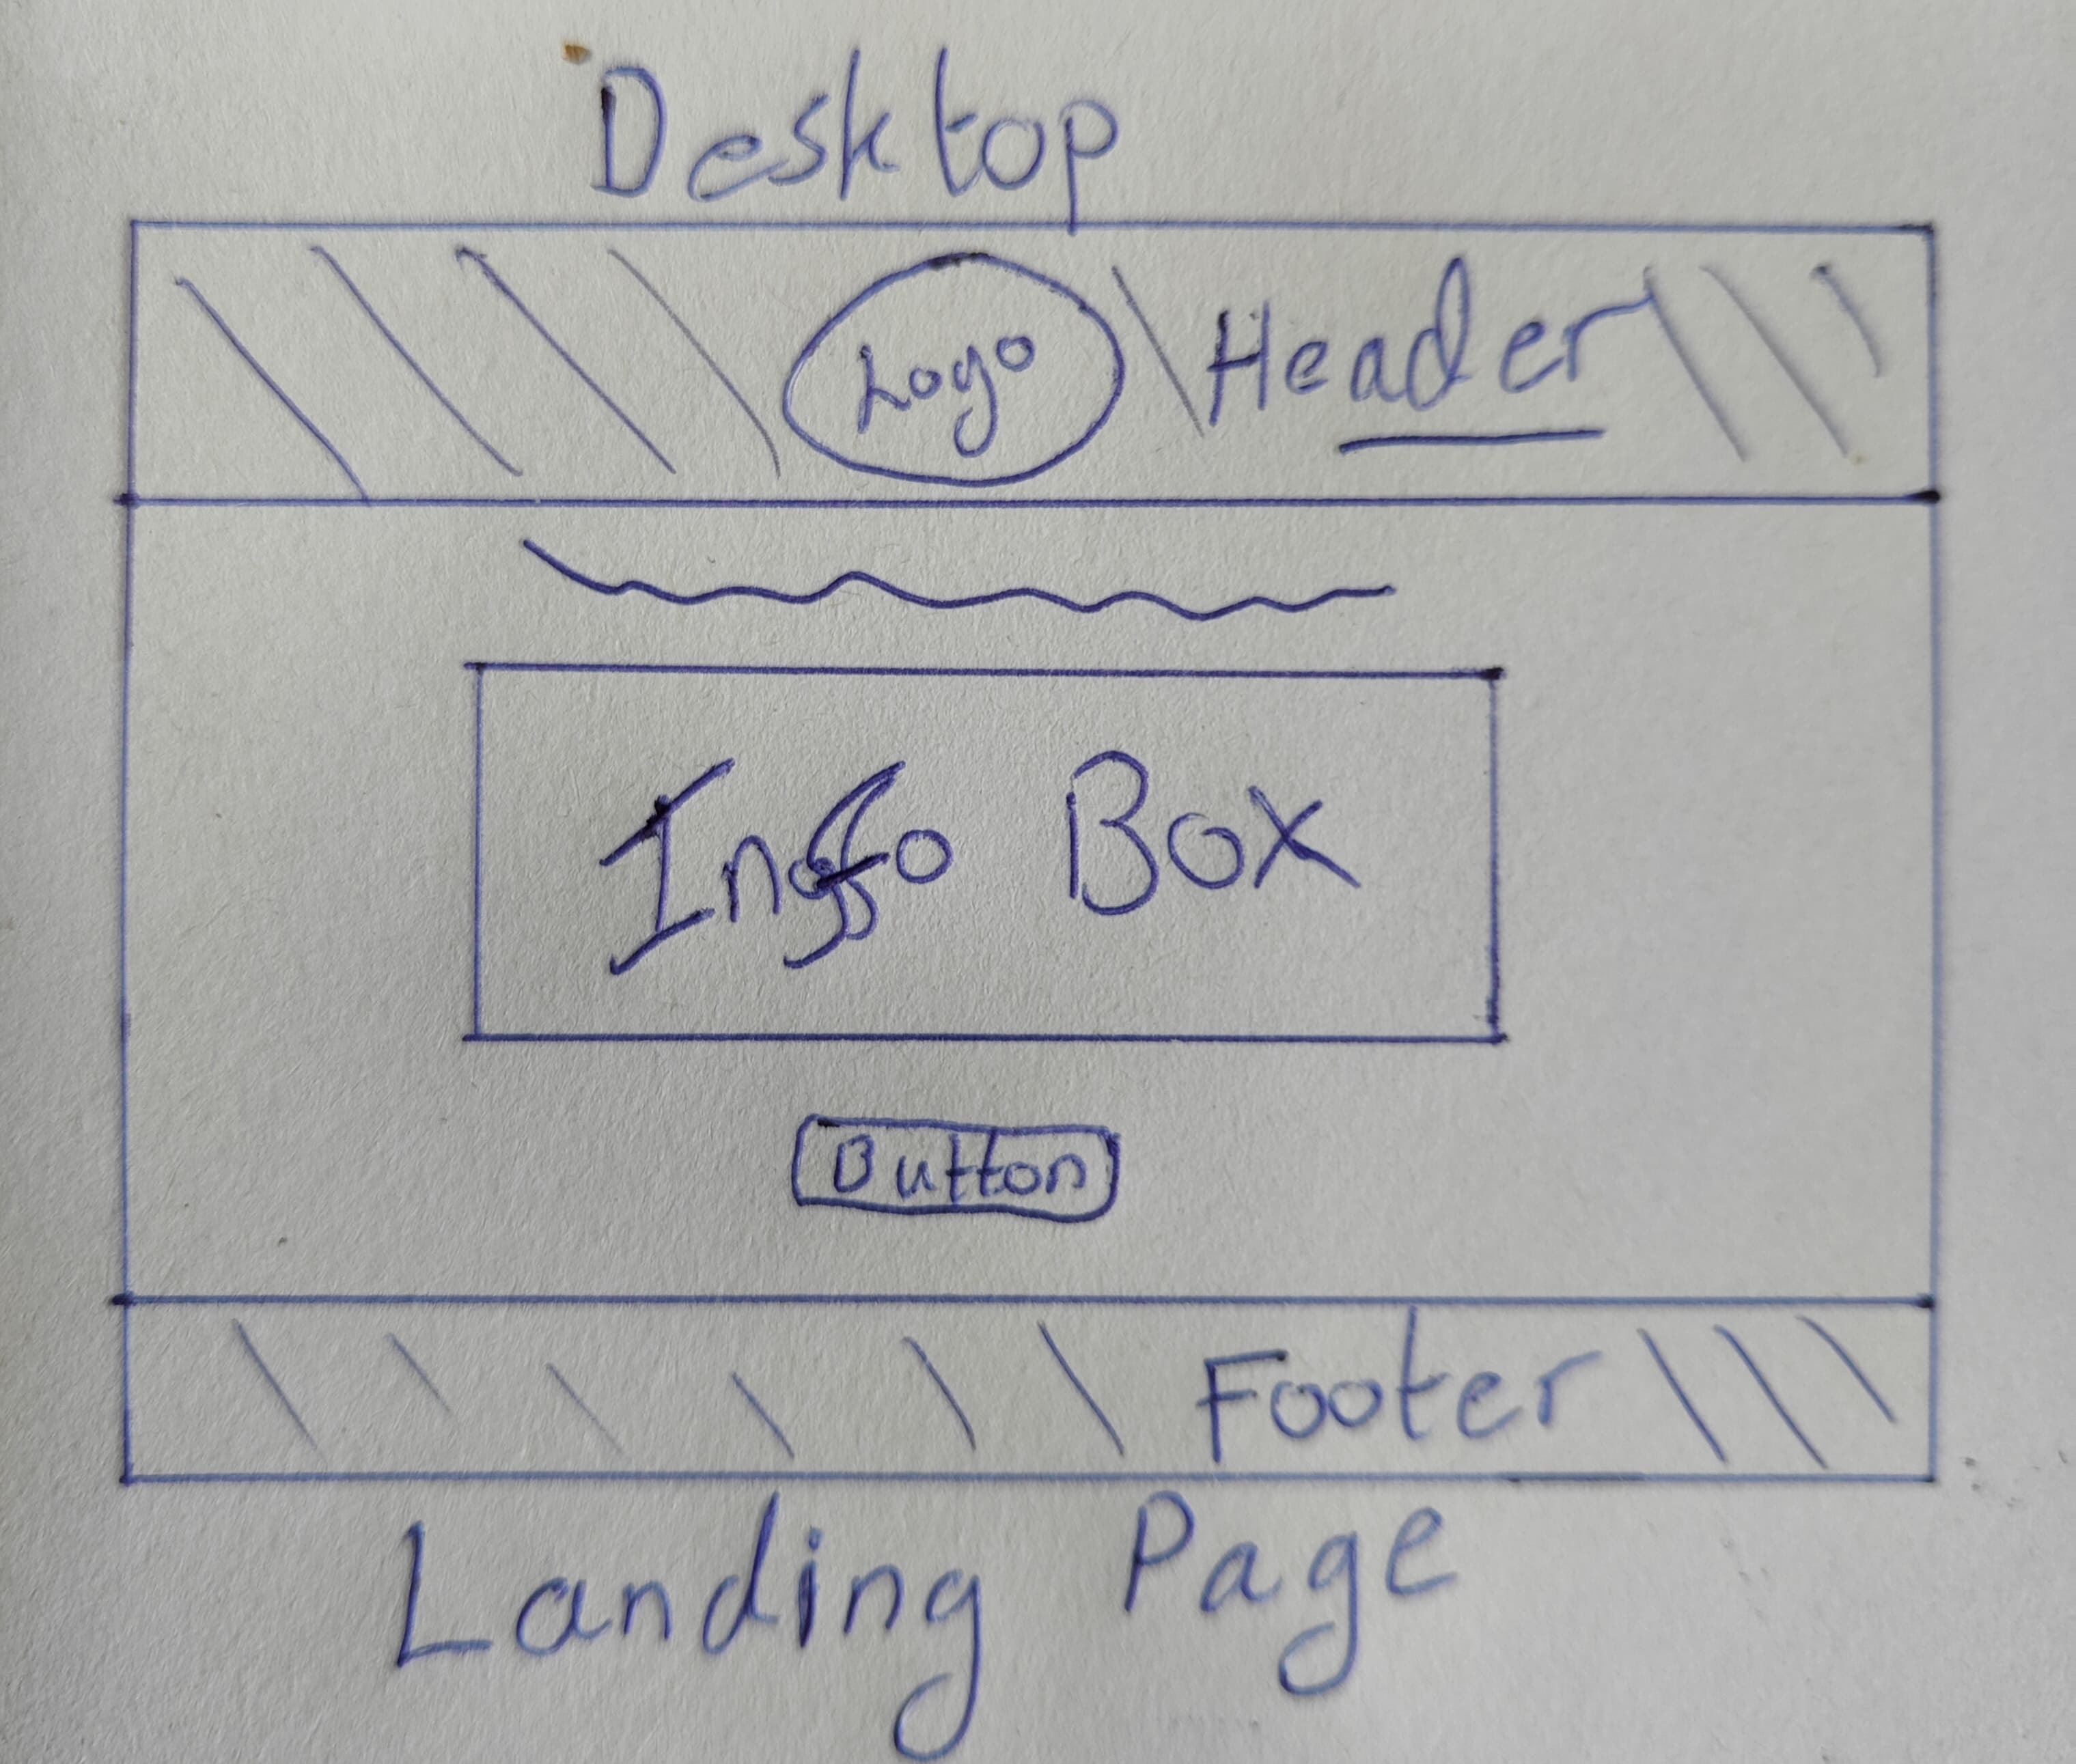 Desktop
Logo Header
Info Box
Button
Footer
Landing Page